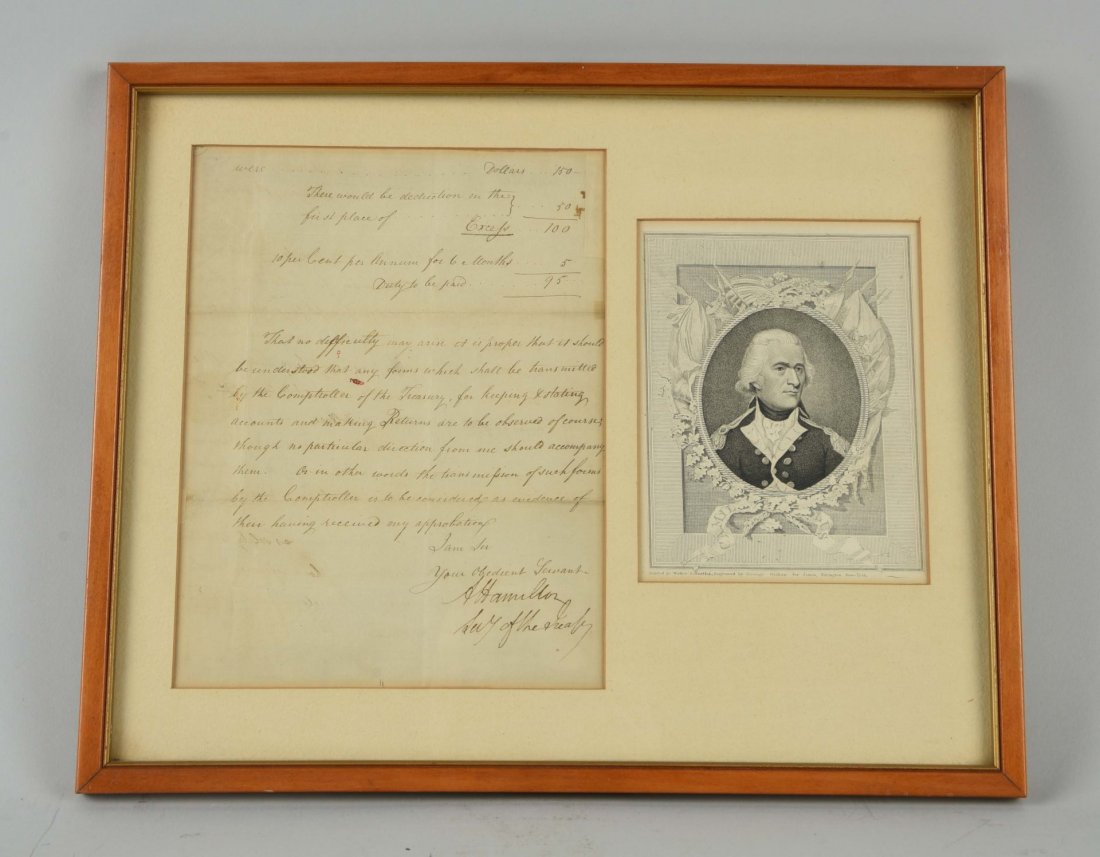 were . . . . . . . . . . . . . . . . Dollars . . . 150 –
There would be deduction in the } . . . 50
first place of . . . . . . . . . .
Excess . . . 100
10 per Cent per Annum for 6 Months . . . 5
Duty to be paid . . . . . 95
That no difficulty may arise it is proper that it should
be understood that any forms which shall be transmitted
by the Comptroller of the Treasury, for keeping & stating
accounts and making Returns are to be observed of course,
though no particular direction from me should accompany
them. Or in other words the transmission of such forms
by the Comptroller is to be considered as evidence of
their having received my approbation
I am Sir
Your Obedient Servant
A Hamilton
Secy of the Treasy